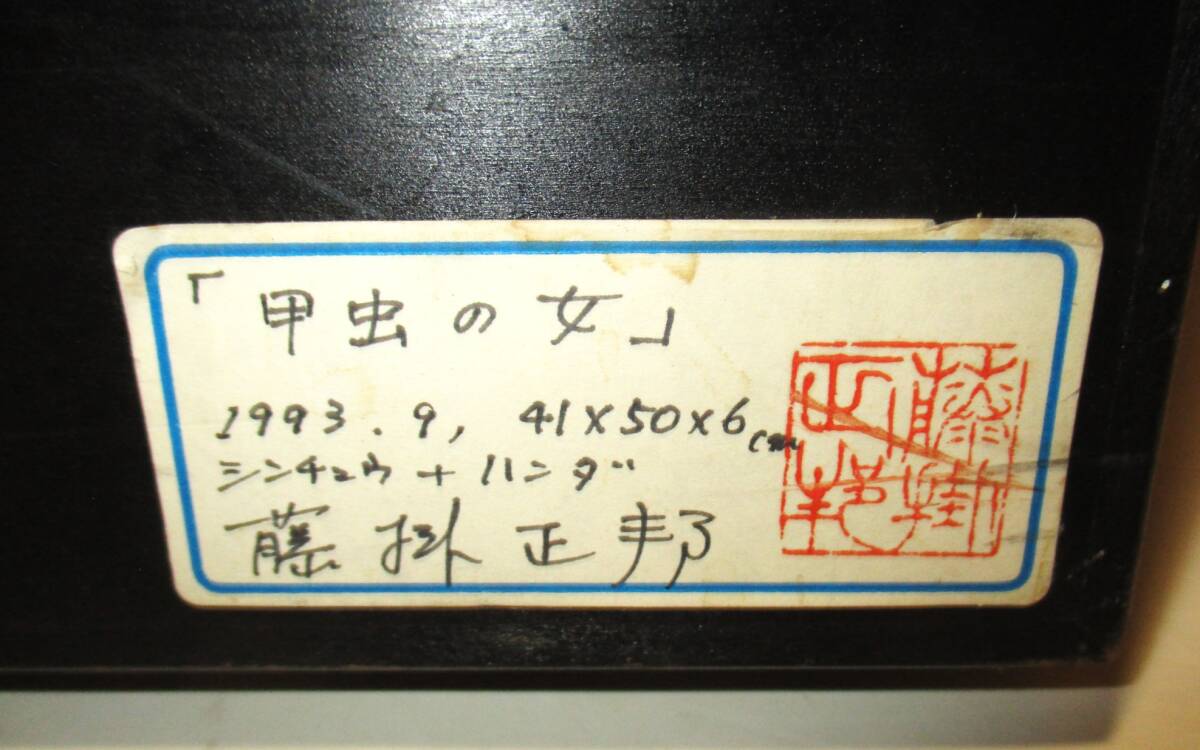 「甲虫の女」
1993.9, 41×50×6cm
シンチュウ+ハンダ
藤掛正邦
藤掛正邦